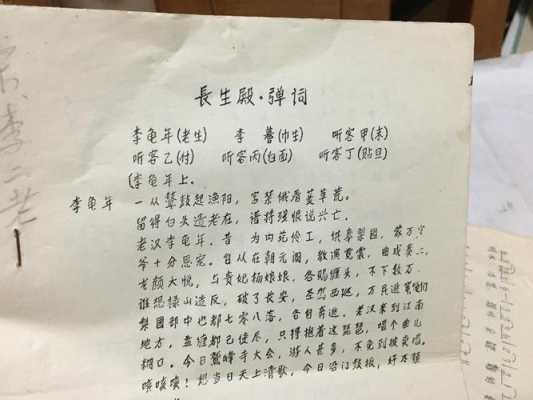 長生殿·弹词
李龟年(老生) 李 謩(巾生) 听客甲(末)
听客乙(付) 听客丙(白面) 听客丁(贴旦)
(李龟年上.
李龟年 一从鼙鼓起渔阳,宫禁俄看蔓草荒.
留得白头遗老在,谱将残恨说兴亡.
老汉李龟年,昔 为内苑伶工,供奉梨园,蒙万岁
爷十分恩宠.自从在朝元阁,教演霓裳,曲成奏上,
龙颜大悦,与贵妃杨娘娘,各赐缠头,不下数万.
谁想禄山造反,破了长安,圣驾西巡,万民逃窜
梨园部中也都七零八落,各自奔逃.老汉来到江南
地方,盘缠都已使尽,只得抱着这琵琶,唱个曲儿
糊口.今日鹫峰寺大会,游人甚多,不免到彼卖唱.
咳咳咳!想当日天上清歌,今日沿门鼓板,好不
李二老